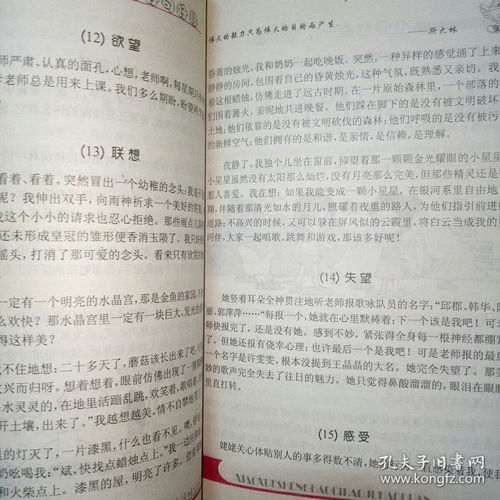 (12) 欲望
师严肃、认真的面孔，心想，老师啊，每星期只
老师总是用来上课。我们多么期盼，盼望
(13) 联想
看着、看着。突然冒出一个幼稚的念头：我是
呢？我伸出双手，向雨神祈求一个美好的
我这个小小的请求也忍心拒绝。那些雨点儿
还未形成皇冠的雏形便香消玉殒了。我只
摇头，打消了那可爱的念头。看来只有欣赏
一定有一个明亮的水晶宫，那是金鱼的家园，不
么欢快？那水晶宫里一定有一块巨大、发光的
得这样美？
不住地想：二十多天了，蘑菇该长出来了吧
败兴而归呀。想着想着，眼前仿佛出现了一
水灵灵的，在地里活蹦乱跳，欢笑着，歌唱着
开土壤，出来了。“我越想越美，情不自禁地
的灯灭了，一片漆黑，什么也看不见。噢，
奶吆喝我：“斌，快找点蜡烛点上。”我一边应
和火柴点上。漆黑的屋，明亮了许多。
伟大的毅力只为伟大的目的而产生。
——斯大林
昏黄的烛光，我和奶奶一起吃晚饭。突然，一种异样的感觉涌了上来
的房间内，包围着自己的昏黄烛光，这种气氛，既熟悉又亲切。我
着这根蜡烛，仿佛走进了远古时代。在一片原始森林里，一个部落的
们围着篝火，亲昵地共进晚餐。他们踩在脚下的是没有被文明破坏
上地；他们依靠的是没有被文明砍伐的森林；他们呼吸的是没有被污
的新鲜空气；他们拥有的是和谐，是亲情，是信赖，是理解。
夜静了，我独个儿坐在窗前，仰望着那一颗颗金光耀眼的小星星
小星星虽然没有太阳那么灿烂，没有月亮那么完美，但那些精灵还是
惹人喜爱，我在想：如果我能变成一颗小星星，在银河系里自由地
翔，伴随着那清光如水的月儿，照耀着夜里的路人，为他们指引前进
道路；不高兴的时候，又可以躲在屏风似的云霞里，将白云当成我的
同伴，大家一起唱歌、跳舞和游戏，那该多好呢！
(14) 失望
她竖着耳朵全神贯注地听老师报歌咏队员的名字：“邱郡、韩华、
丽、郭萍萍……”每报一个，她就在心里默祷着：下一个该是我吧！可
师快报完了，还是没有她。感到不妙，紧张得全身每一根神经都绷
了。但她还报有侥幸心理；也许最后一个是我吧！可是老师报的最
一个名字是许雯雯，根本没提到王晶晶的大名。她完全失望了。那
妙的歌声完全失去了往日的魅力。她只觉得鼻酸溜溜的，眼泪在眼
里直打转。
(15) 感受
姥姥关心体贴别人的事多得数不清，她
XIAOXUESHENGHAOCIHAOJUHAODUAN
孔夫子旧书网